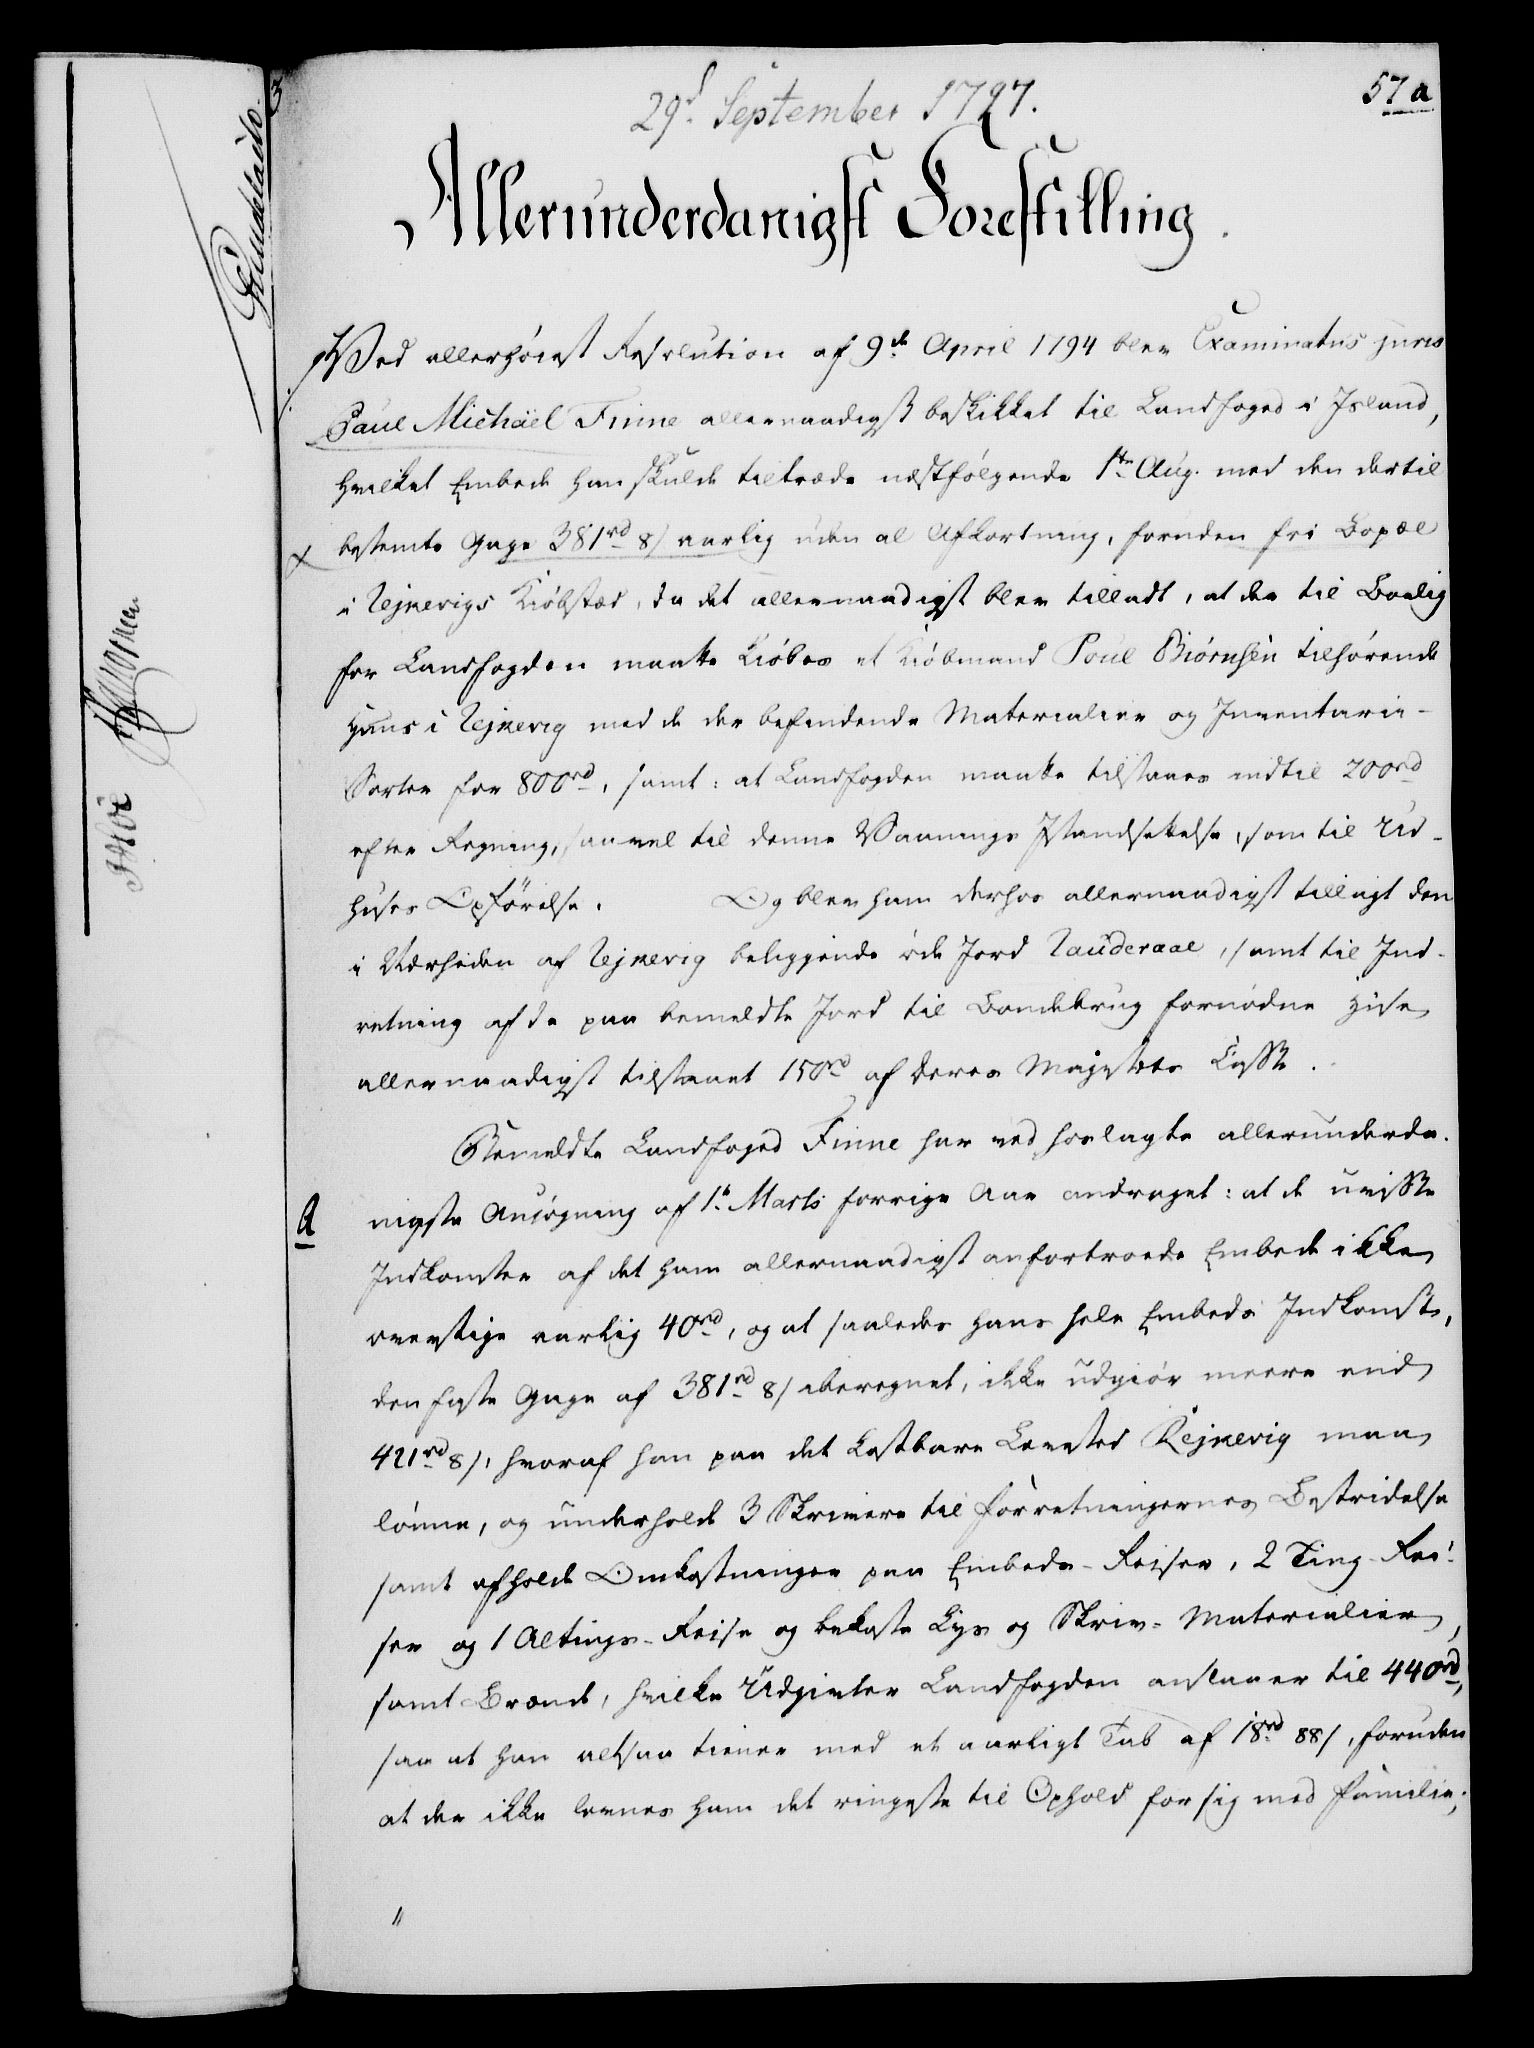 29d. September 1797.
57 a
Allerunderdanigst Forestilling.
Ved allerhöiest Resolution af 9de April 1794 blev Examinatus juris
Paul Michaël Finne allernaadigst beskikket til Landfoged i Island,
hvilket Embede han skulde tiltræde næstfølgende 1te Aug. med den dertil
bestemte Gage 381rd 8/ aarlig uden al Afkortning, foruden fri Bopæl
i Rejkevigs Kiöbstæd, da det allernaadigst blev tilladt, at der til Bolig
for Landfogden maatte kiöbes et Kiöbmand Poul Biörnsen tilhörende
Huus i Rejkevig med de der befindende Materialier og Inventarie-
Sorter for 800rd, samt: at Landfogden maatte tilstaaes indtil 200rd
efter Regning, saavel til denne Vaanings Istandsættelse, som til Ud-
huses Opförelse. Og blev ham derhos allernaadigst tillagt den
i Nærheden af Rejkevig beliggende öde Jord Rauderaae, samt til Ind-
retning af de paa bemeldte Jord til Bondebrug fornödne Huse
allernaadigst tilstaaet 150rd af Deres Majestæts Casse.
Bemeldte Landfoged Finne har ved hoslagte allerunderda-
A
nigste Ansögning af 1te Marts forrige Aar andraget: at de uvisse
Indkomster af det ham allernaadigst anfortroede Embede ikke
overstige aarlig 40rd, og at saaledes hans hele Embeds Indkomst,
den faste Gage af 381rd 8/ iberegnet, ikke udgiör meere end
421rd 8/, hvoraf han paa det kostbare Levested Rejkevig maa
lönne, og underholde 3 Skrivere til Forretningernes Bestridelse
samt afholde Omkostninger paa Embeds-Reiser, 2 Ting-Rei-
ser og 1 Altings-Reise og bekoste Lys og Skriv-Materialier,
samt Brænde, hvilke Udgivter Landfogden anslaaer til 440rd,
saa at han altsaa tiener med et aarligt Tab af 18rd 88/, foruden
at der ikke levnes ham det ringeste til Ophold for sig med Familie;
"